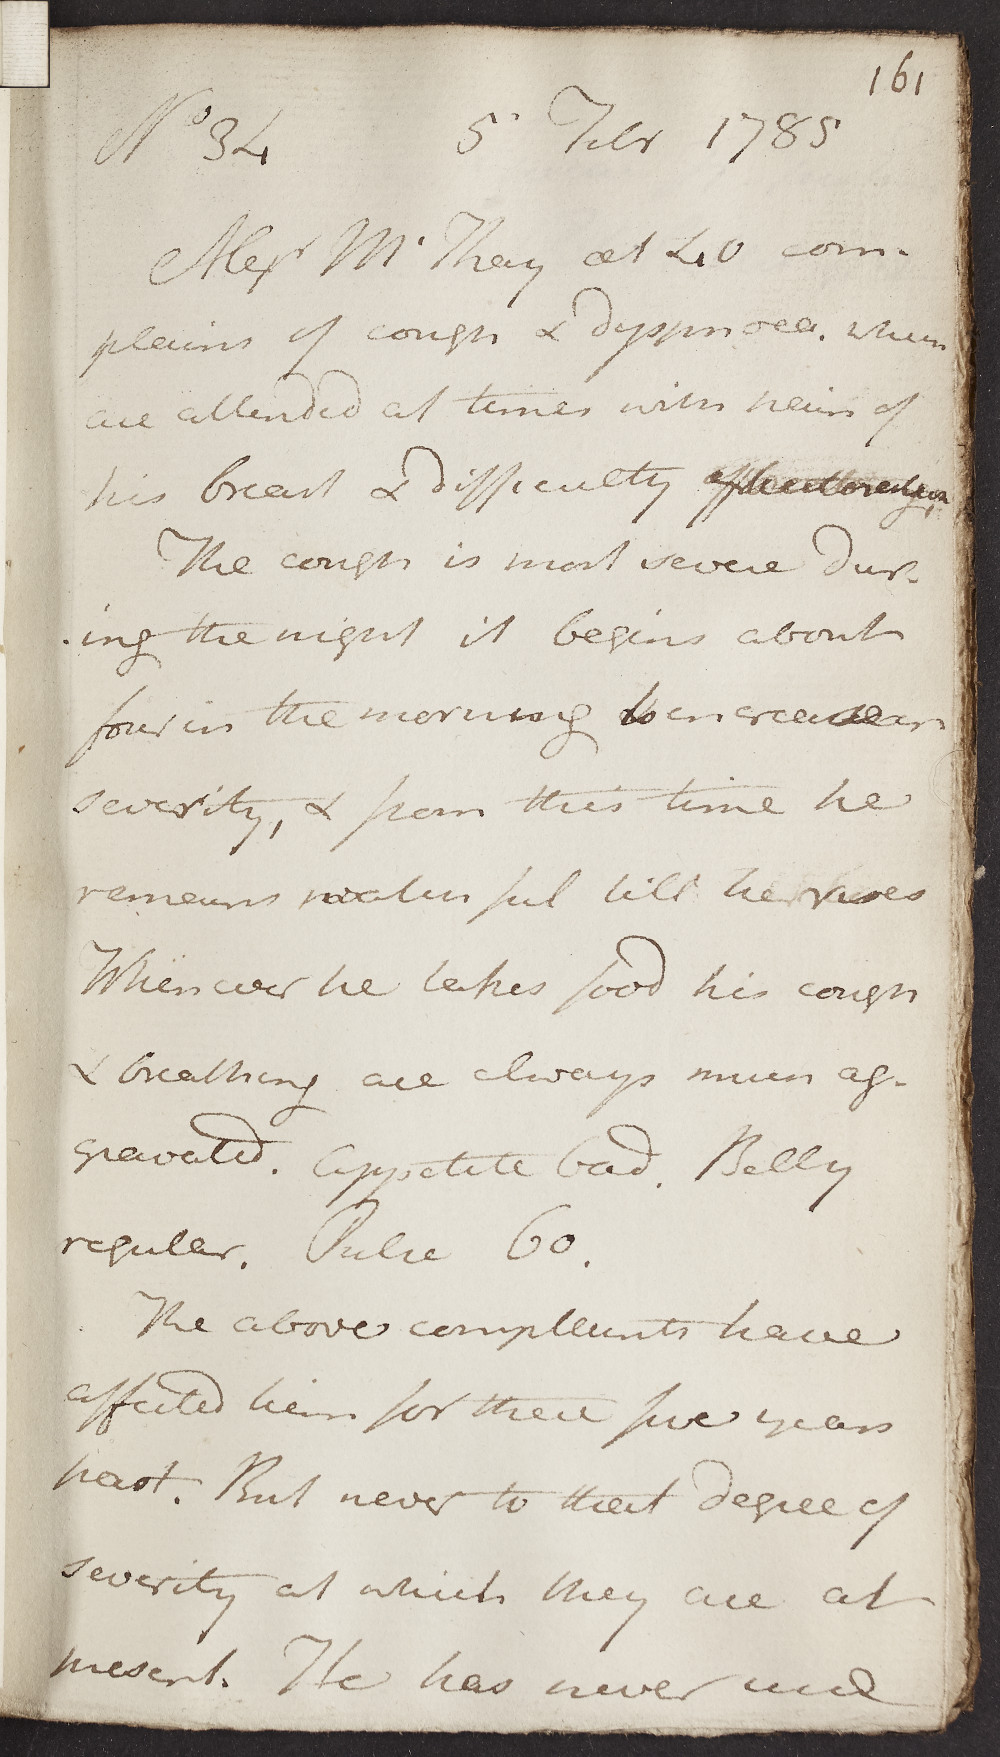 161
No 34 5 Febr 1785
Alexr Mc Thay aet 40 com-
plains of cough & dyspnoea. which
are attended at times with pain of
his breast & difficulty of
The cough is most severe dur-
-ing the night it begins about
four in the morning to increase in
severity, & from this time he
remains watchful till he rises
Whenever he takes food his cough
& breathing are always much ag-
gravated. Appetite bad. Belly
regular. Pulse 60.
The above complaints have
affected him for these five years
past. But never to that degree of
severity at which they are at
present. He has never used